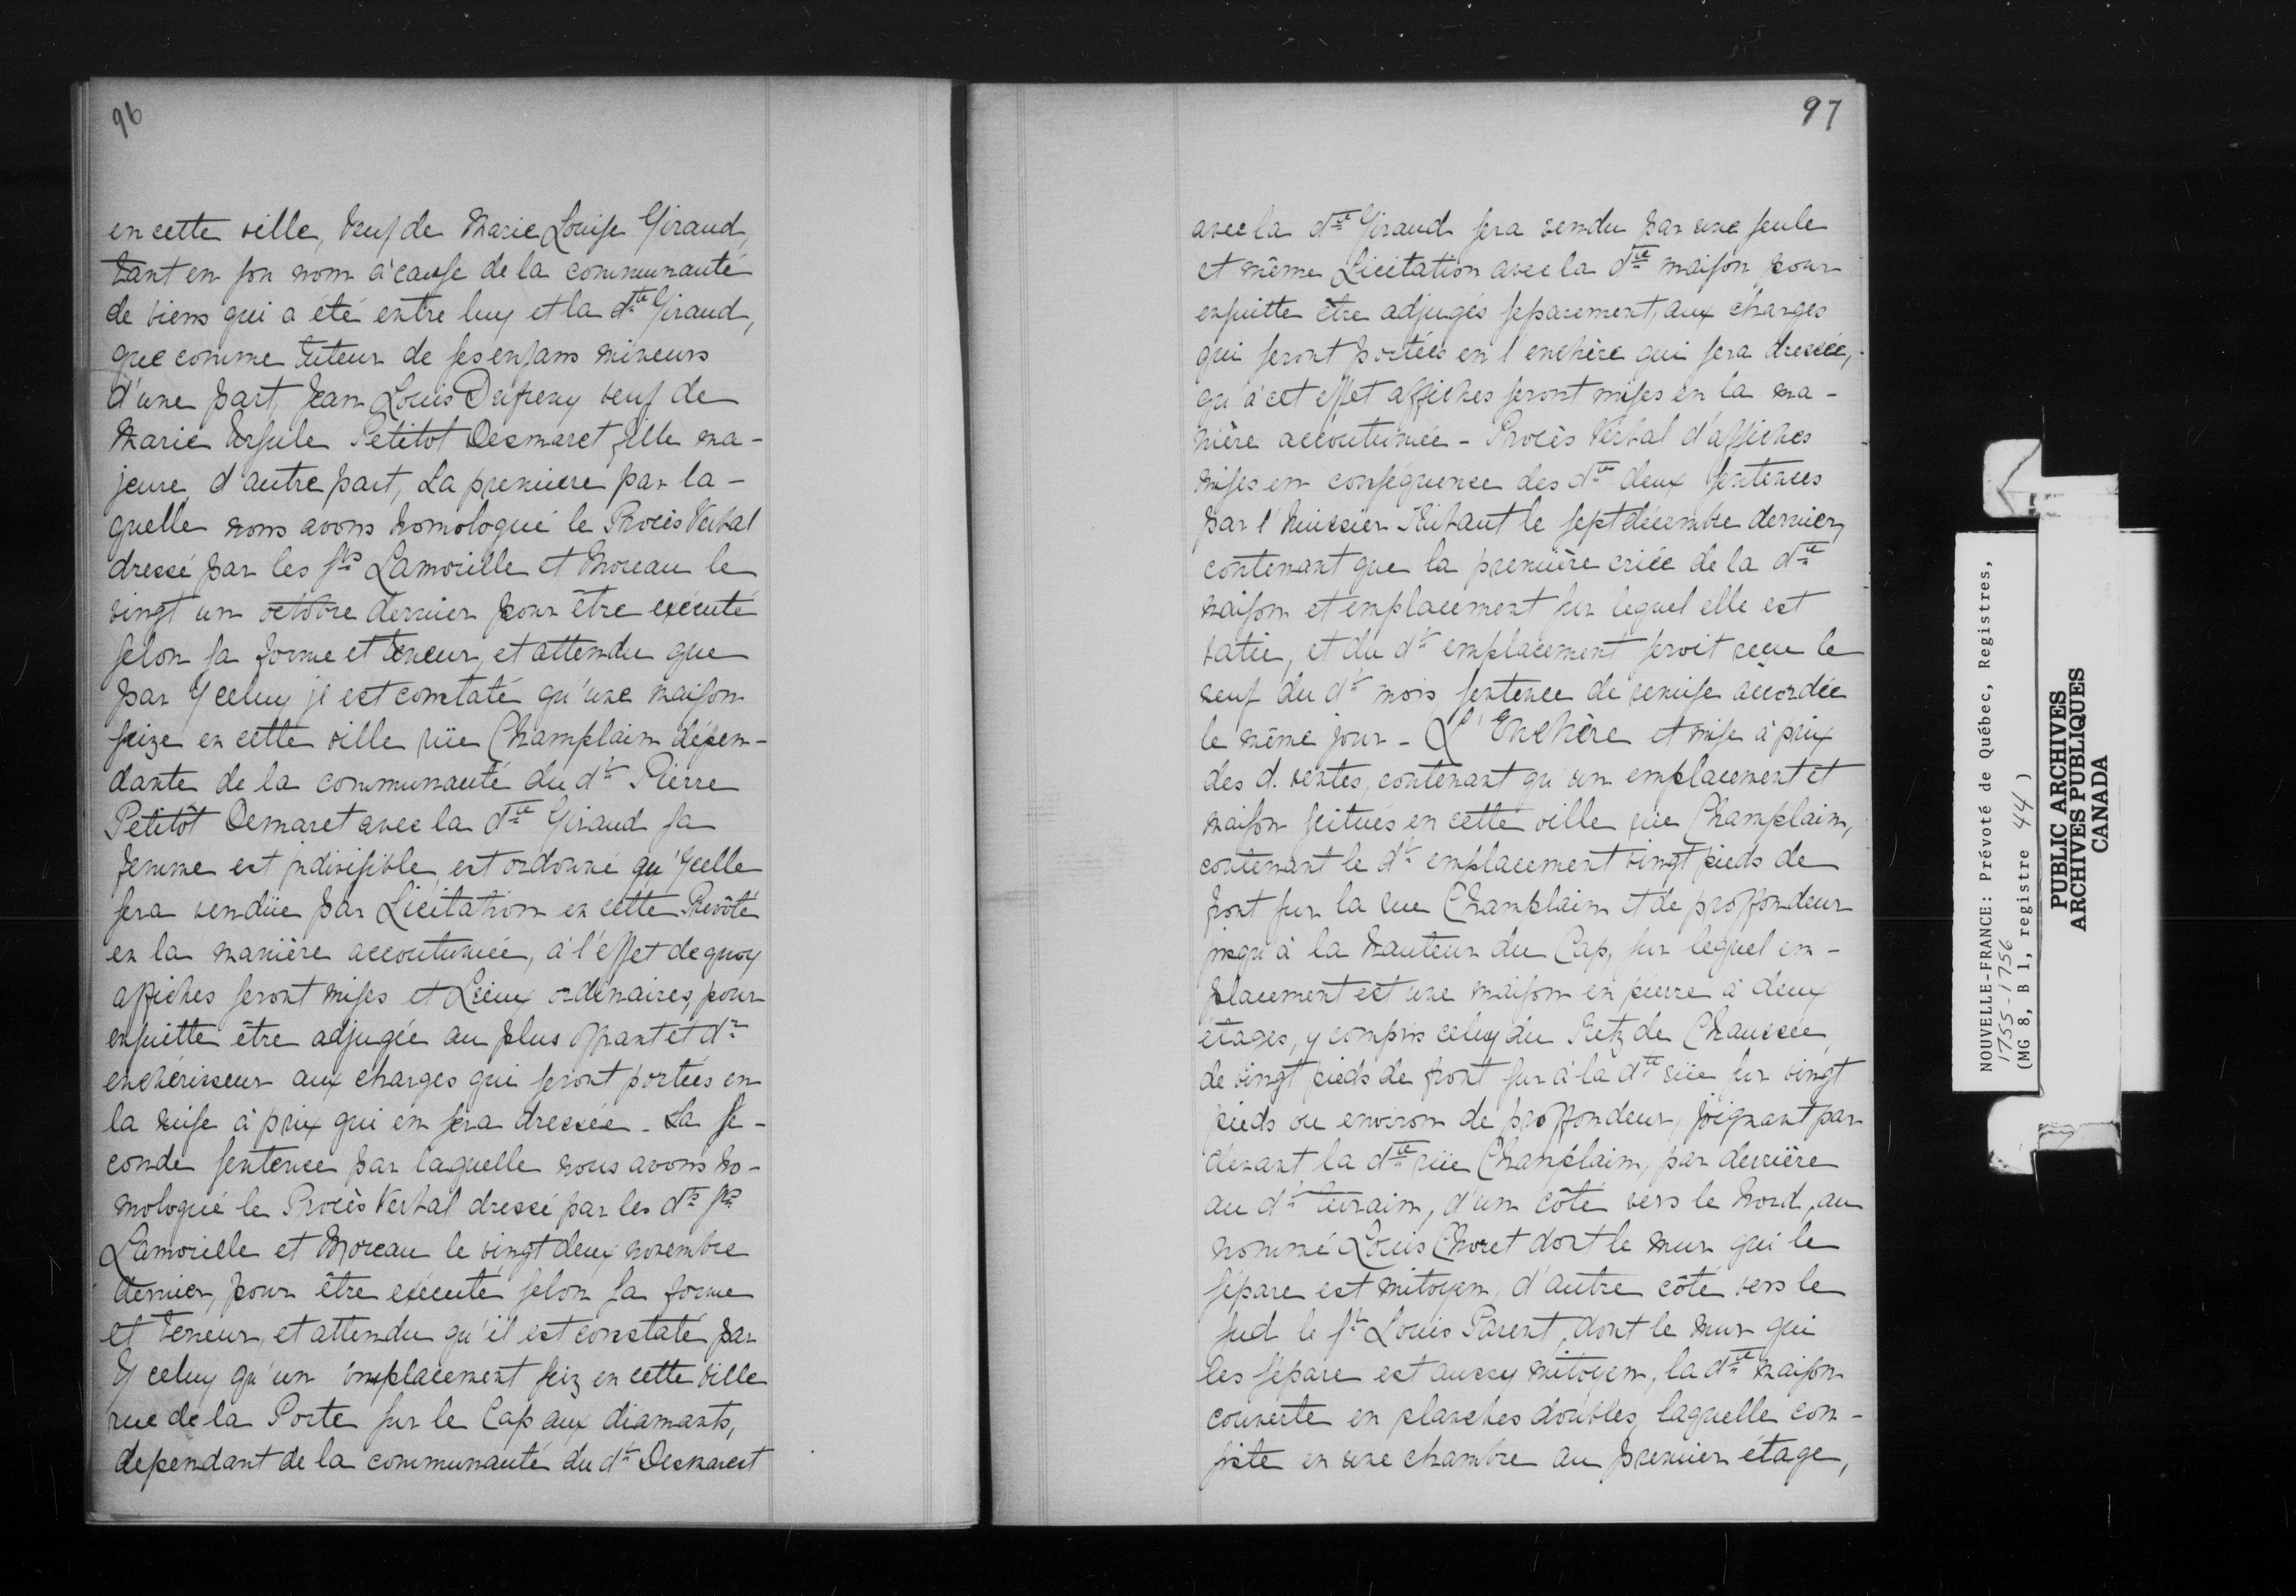 96
en cette ville, veuf de Marie Louise Giraud,
tant en son nom à cause de la communauté
de biens qui a été entre luy et la dte Giraud,
que comme Tuteur de ses enfans mineurs
d'une part, Jean Louis Dufreny veuf de
Marie Ursule Petitot Desmaret fille ma-
jeure d'autre part, La premiere par la-
quelle nous avons homologué le Procès Verbal
dressé par les Srs Lamorille et Moreau le
vingt un octobre dernier pour être exécuté
selon sa forme et teneur, et attendu que
par Yceluy il est constaté qu'une maison
seize en cette ville rüe Champlain dépen-
dante de la communauté du dt Pierre
Petitôt Demaret avec la dte Giraud sa
femme est indivisible, est ordonné qu'Ycelle
sera vendüe par Licitation en cette Prevôté
en la manière accoutumée, à l'effet de quoy
affiches seront mises et Lieux ordinaires, pour
ensuitte être adjugée au plus offrant et dr
enchérisseur aux charges qui seront portées en
la mise à prix qui en sera dressée - La se-
conde sentence par laquelle nous avons ho-
mologué le Procès Verbal dressé par les dts Srs
Lamorille et Moreau le vingt deux novembre
dernier, pour être exécuté selon sa forme
et teneur, et attendu qu'il est constaté par
Yceluy qu'un emplacement seiz en cette ville
rue de la Porte sur le Cap aux diamants,
dependant de la communauté du dt Desmarest
97
avec la dte Giraud sera vendu par une seule
et même Licitation avec la dte maison pour
ensuitte être adjugés separement, aux charges
qui seront portées en l'enchère qui sera dressée,
qu'à cet effet affiches seront mises en la ma-
nière accoutumée - Procès Verbal d'affiches
mises en conséquence des dtes deux sentences
par l'huissier Thibault le sept décembre dernier,
contenant que la première criée de la dte
maison et emplacement sur lequel elle est
batie, et du dt emplacement seroit reçue le
neuf du dt mois sentence de remise accordée
le même jour - L'Enchère et mise à prix
des d. ventes, contenant qu'un emplacement et
maison scitués en cette ville rüe Champlain,
contenant le dt emplacement vingt pieds de
front sur la rue Champlain et de proffondeur
jusqu'à la hauteur du Cap, sur lequel em-
placement est une maison en pierre à deux
étages, y compris celuy du Retz de Chaussée,
de vingt pieds de front sur à la dte rüe sur vingt
pieds ou environ de proffondeur, joignant par
devant la dte rüe Champlain, par derrière
au dt terrain, d'un côté vers le Nord, au
nommé Louis Choret dont le mur qui le
sépare est mitoyen, d'autre côté vers le
sud le Sr Louis Parent, dont le mur qui
les sépare est aussy mitoyen, la dte maison
couverte en planches doubles, laquelle con-
siste en une chambre au premier étage,
NOUVELLE-FRANCE: Prévoté de Québec, Registres,
1755-1756
(MG 8, B 1, registre 44 )
PUBLIC ARCHIVES
ARCHIVES PUBLIQUES
CANADA